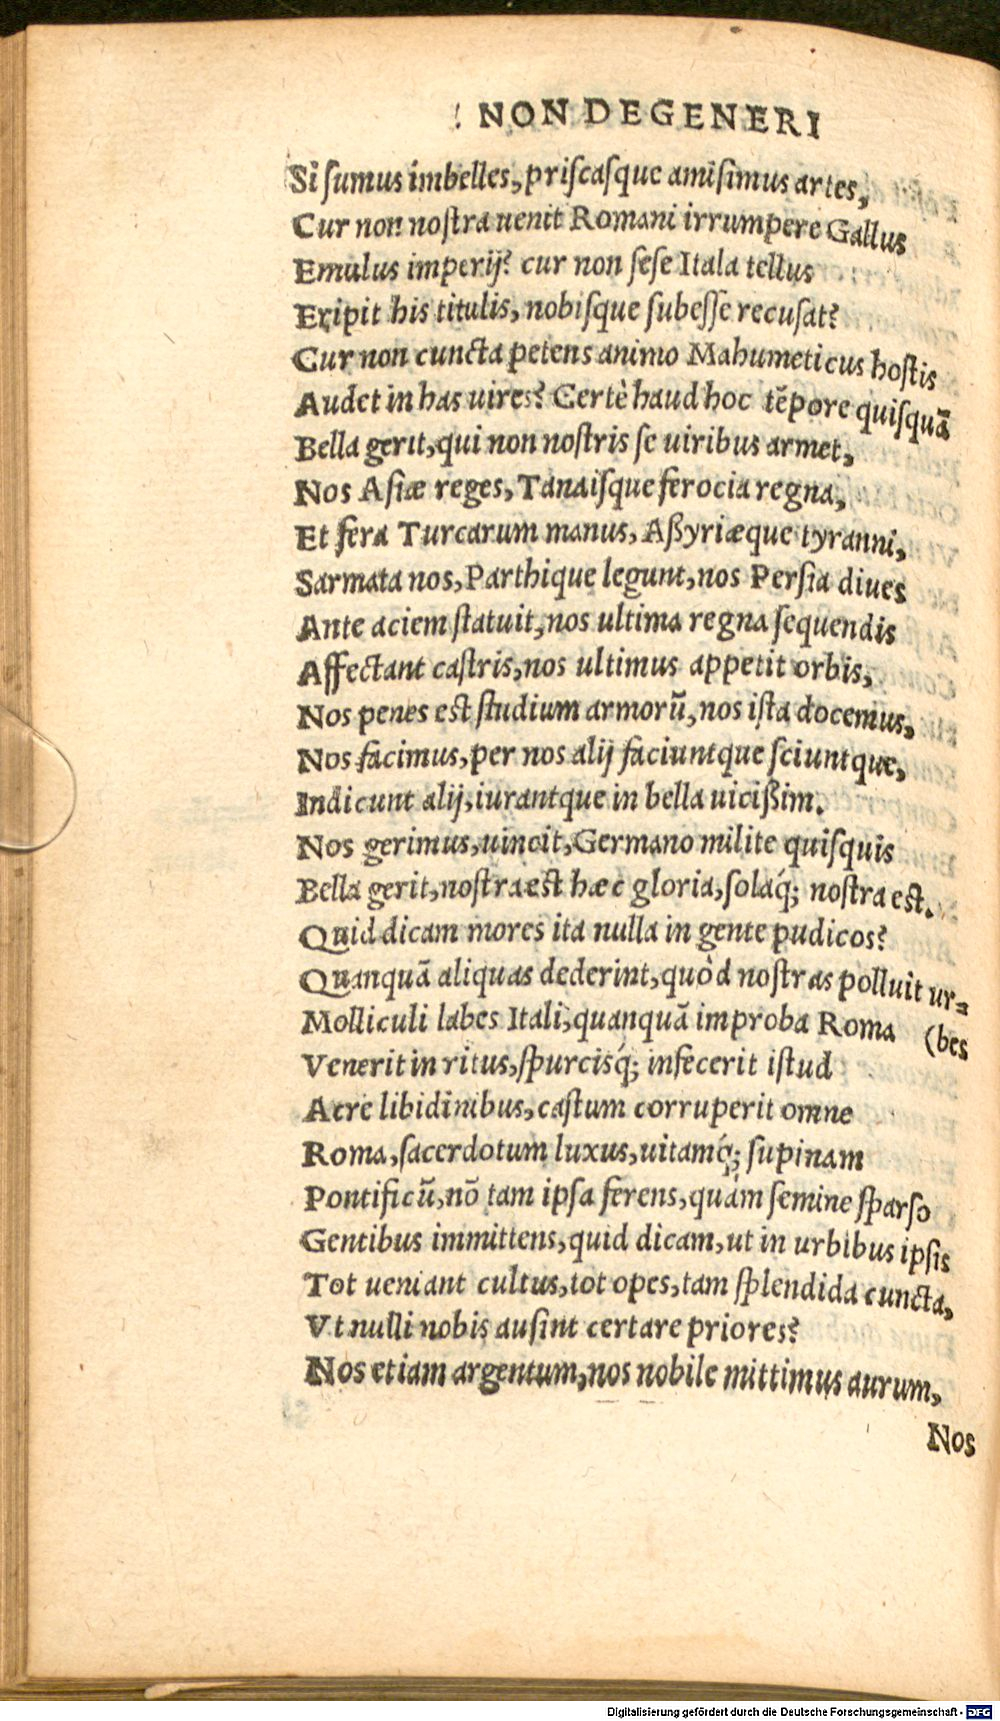 NON DEGENERI
Si ſumus imbelles, priſcaſque amiſimus artes,
Cur non noſtra uenit Romani irrumpere Gallus
Emulus imperij? cur non ſeſe Itala tellus
Eripit his titulis, nobiſque ſubeſſe recuſat?
Cur non cuncta petens animo Mahumeticus hoſtis
Audet in has uires? Certè haud hoc tēpore quiſquā
Bella gerit, qui non noſtris ſe uiribus armet,
Nos Aſiæ reges, Tanaiſque ferocia regna,
Et fera Turcarum manus, Aßyriæque tyranni,
Sarmata nos, Parthique legunt, nos Perſia diues
Ante aciem ſtatuit, nos ultima regna ſequendis
Affectant caſtris, nos ultimus appetit orbis,
Nos penes eſt ſtudium armorū, nos iſta docemus,
Nos facimus, per nos alij faciuntque ſciuntque,
Indicunt alij, iurantque in bella uicißim.
Nos gerimus, uincit, Germano milite quiſquis
Bella gerit, noſtra eſt hæc gloria, ſolaq́; noſtra eſt.
Quid dicam mores ita nulla in gente pudicos?
Quanquā aliquas dederint, quòd noſtras polluit ur=
Molliculi labes Itali, quanquā improba Roma (bes
Venerit in ritus, ſpurcisq́; infecerit iſtud
Aere libidinibus, caſtum corruperit omne
Roma, ſacerdotum luxus, uitamq́; ſupinam
Pontificū, nō tam ipſa ferens, quám ſemine ſparſo
Gentibus immittens, quid dicam, ut in urbibus ipſis
Tot ueniant cultus, tot opes, tam ſplendida cuncta,
Vt nulli nobis auſint certare priores?
Nos etiam argentum, nos nobile mittimus aurum,
Nos
Digitalisierung gefördert durch die Deutsche Forschungsgemeinschaft - DFG